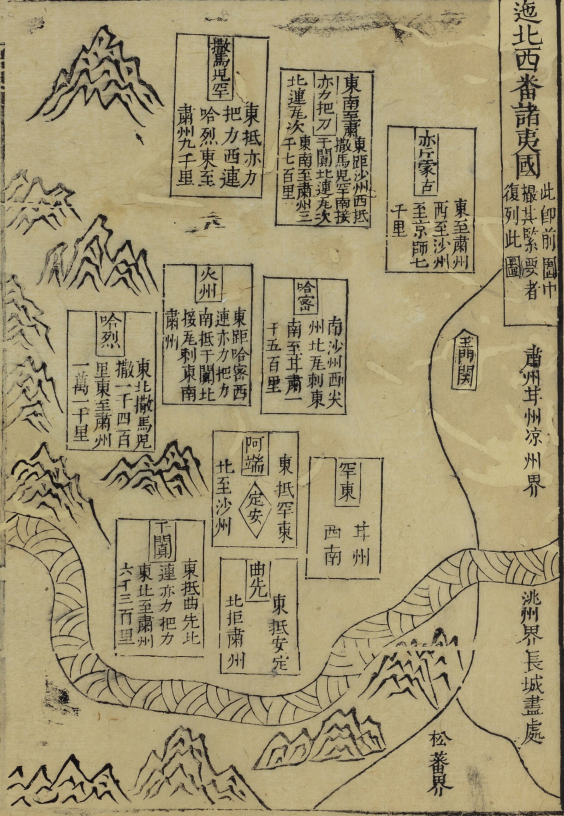 迤北西番諸夷國
此即前圖中
撮其緊要者
復列此圖
肅州甘州凉州界
洮州界長城盡處
松蕃界
玉門関
亦斤蒙古
東至肅州
西至沙州
至京師七
千里
亦力把刀
東南至肅
東距沙州西抵
撒馬児罕南接
于闐北連瓦次
北連瓦次
東南至肅州三
千七百里
撒馬児罕
東抵亦力
把力西連
哈烈東至
肅州九千里
哈密
南沙州西尖
州北瓦剌東
南至甘肅一
千五百里
火州
東距哈密西
連亦力把力
南抵于闐北
接瓦剌東南
肅州
哈烈
東北撒馬児
撒一千四百
里東至肅州
一萬一千里
罕東
甘州
西南
阿端
定安
東抵罕東
北至沙州
曲先
東抵安定
北拒肅州
于闐
東抵曲先北
連亦力把力
東北至肅州
六千三百里